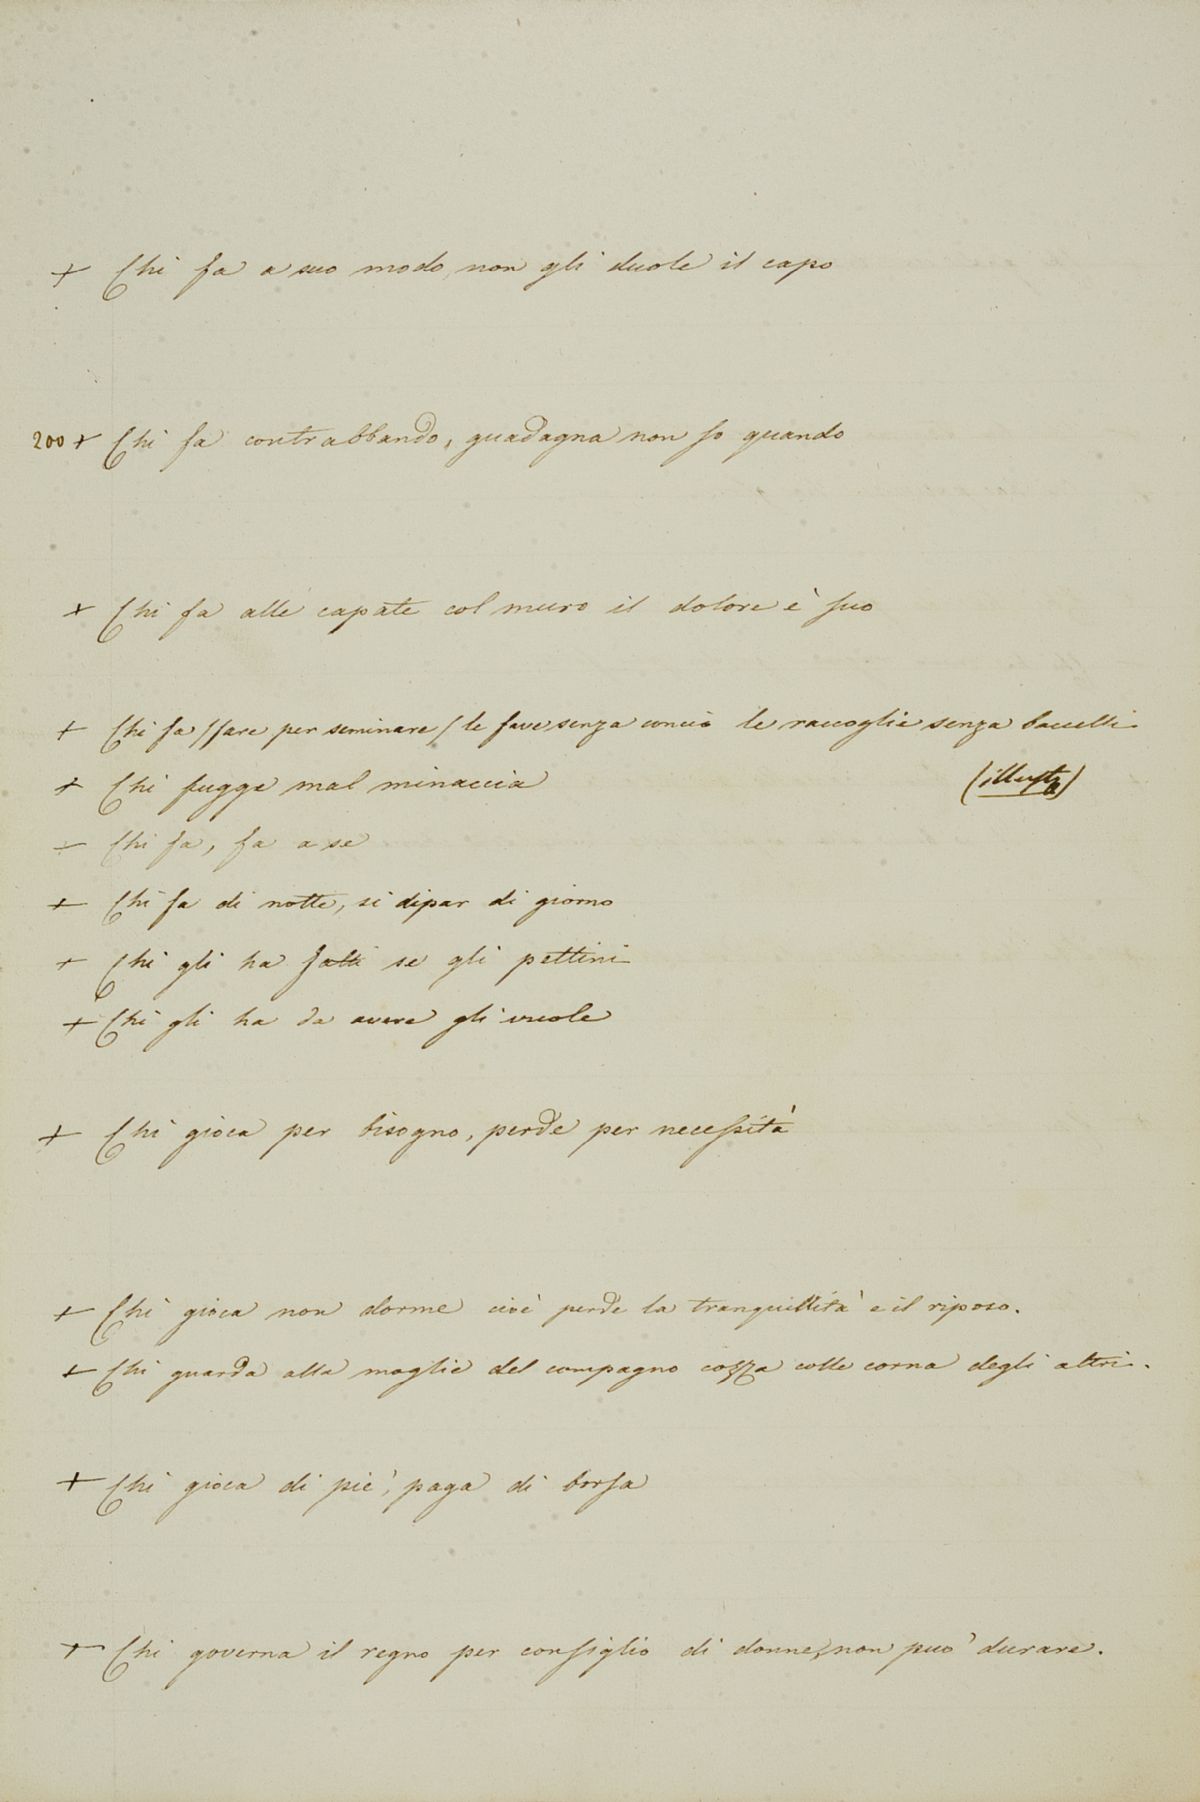 + Chi fa a suo modo, non gli duole il capo
200 + Chi fa contrabbando, guadagna non so quando
+ Chi fa alle capate col muro il dolore è suo
+ Chi fa (fare per seminare) le fave senza concio le raccoglie senza baccelli
+ Chi fugge mal minaccia
(illust.a)
+ Chi fa, fa a se
+ Chi fa di notte, si dipar di giorno
+ Chi gli ha fatti se gli pettini
+ Chi gli ha da avere gli vuole
+ Chi gioca per bisogno, perde per necessità
+ Chi gioca non dorme cioè perde la tranquillità e il riposo.
+ Chi guarda alla moglie del compagno cozza colle corna degli altri.
+ Chi gioca di piè, paga di borsa
+ Chi governa il regno per consiglio di donne, non può durare.